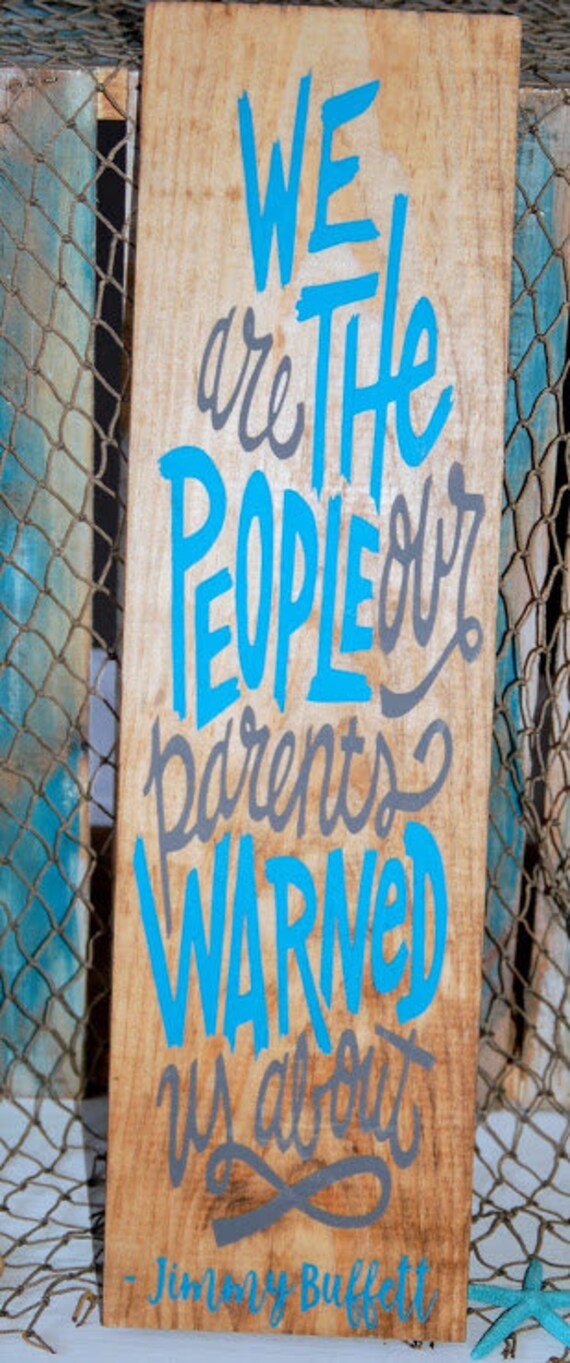 WE
are THe
PEOPLE our
parents
WARNeD
us about
- Jimmy Buffett